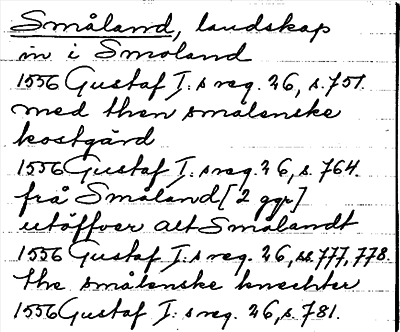 Småland, landskap
in i Smoland
1556 Gustaf I:s reg. 26, s. 751.
med then smålenske
kostgård
1556 Gustaf I:s reg. 26, s. 764.
frå Småland [2 ggr]
utöffver alt Smålandt
1556 Gustaf I:s reg. 26, ss. 777, 778.
the smålenske knechter
1556 Gustaf I:s reg. 26, s. 781.